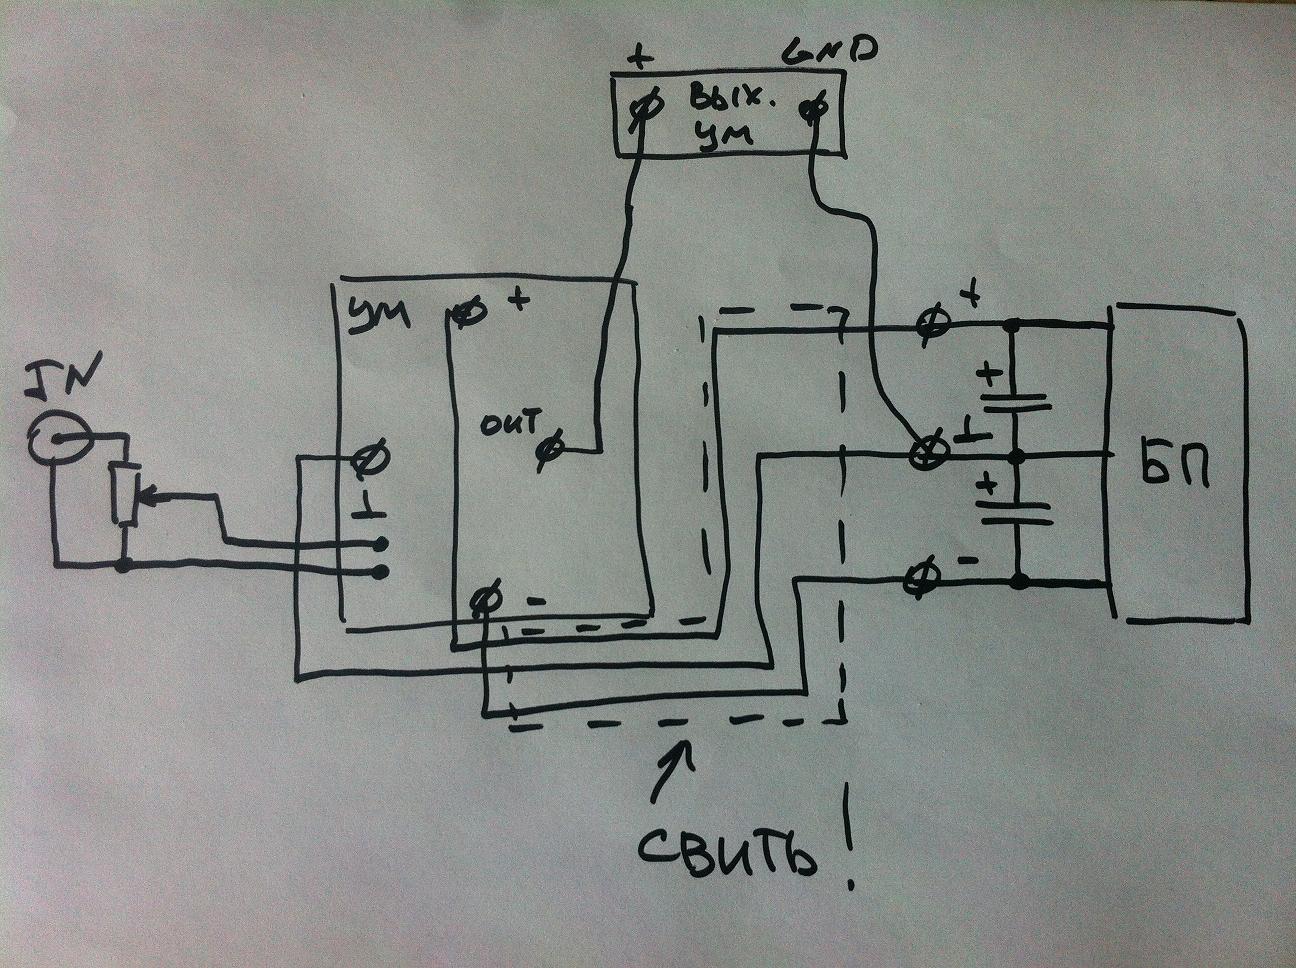 + GND
Вых.
УМ
УМ +
+
IN
+
OUT
⊥
БП
+
⊥
-
-
СВИТЬ!